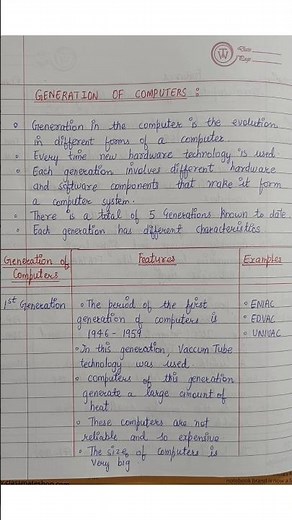 Date
Page
GENERATION OF COMPUTERS :
Generation in the computer is the evolution
in different forms of a computer
Every time new hardware technology is used
Each generation involves different hardware
and software components that make it form
a computer system.
There is a total of 5 Generations known to date.
Each generation has different characteristics
Generation of Computers
Features
Examples
1st Generation
The period of the first
generation of computers is
1946 - 1959
In this generation, Vaccum Tube
technology was used
computers of this generation
generate a large amount of
heat
These computers are not
reliable and so expensive
The size of computers is
very big
ENIAC
EDVAC
UNIVAC